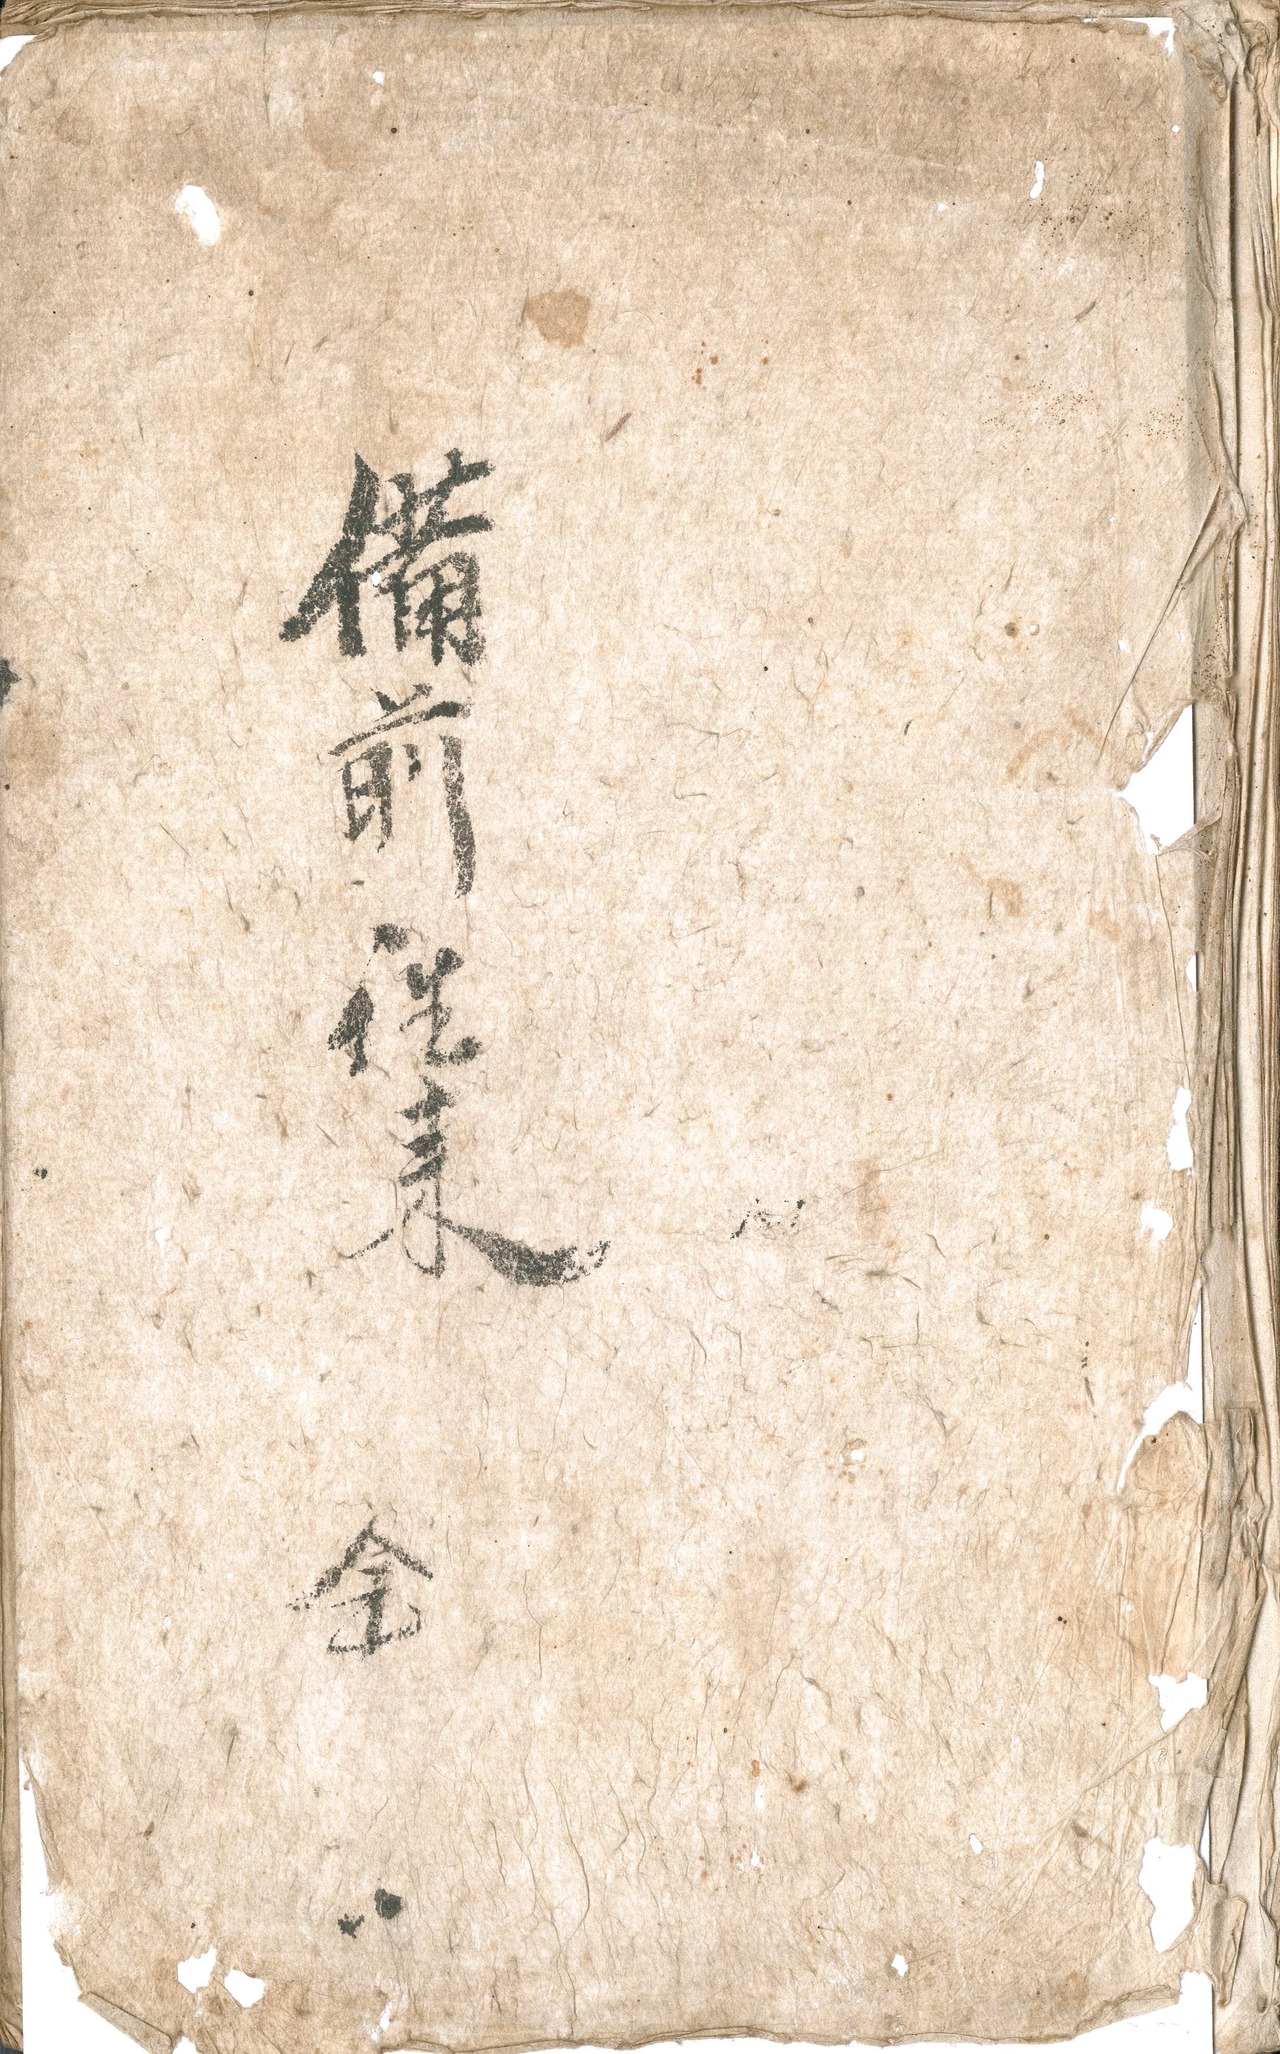 備前往来 全